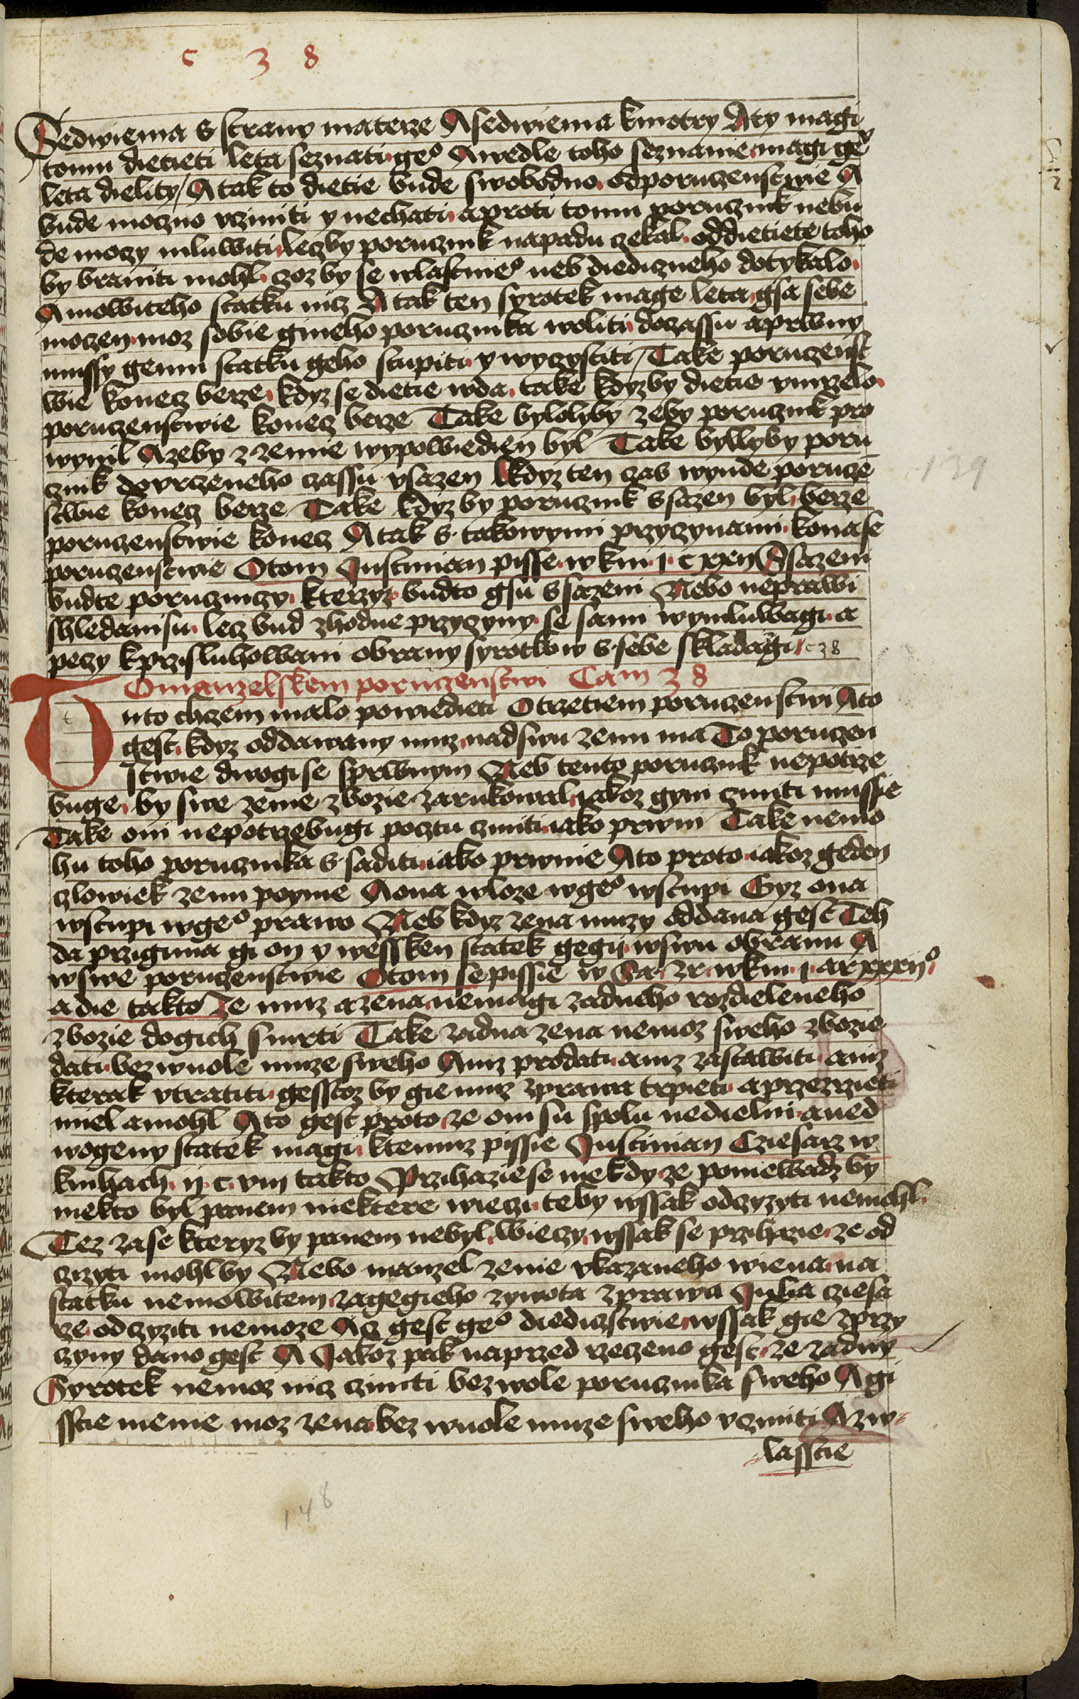 c 3 8
Sedmiema s strany materze A sedmiema kmotry A ty magi
tomu dietieti leta seznati geo A wedle toho seznanie magi geo
leta dielity A tak to dietie bude swobodno od poruczenstwie A
bude moczno vcziniti y nechati a proti tomu porucznik nebu
de moczy mluwiti lecz by porucznik napadu czekal od dietiete toho
by braniti mohl czoz by se wlastnieo neb diediczneho dotykalo
A mowiteho statku nicz A tak ten syrotek mage leta gsa sebe
moczen moz sobie gineho porucznika woliti do czassu a prwny
mussy gemu statku geho stupiti y wyczystiti Take poruczenst
wie konecz berze kdyz se dietie wda take kdyz by dietie vmrzelo
poruczenstwie konecz berze Take bylolyby ze by porucznik pro
winil A ze by z zemie wypowiedien byl Take byllyby poru
cznik do vrczeneho czassu vsazen A kdyz ten czas wynde porucze
stwie konecz berze Take kdyz by porucznik ssazen byl berze
poruczenstwie konecz A tak s takowymi przyczynami kona se
poruczenstwie O tom Justinian pisse w kni i c xxii Ssazeni
budte porucznicy kterzyz budto gsu ssazeni Nebo neprawi
shledani su lecz bud zhodne przyczyny se sami wymluwagi a
peczy k przisluhowani obrany syrotkow s sebe skladagi c 38
O manzelskem poruczenstwi Cam 38
Tuto chczem malo powiedieti O trzetiem poruczenstwi A to
gest kdyz oddawany muz nad swu zenu ma To poruczen
stwie dwogi se s prwnym Neb tento porucznik nepotrze
buge by swe zenie zbozie zarukowal iakoz gym cziniti mussie
Take oni nepotrzebugi pocztu cziniti iako prwni Take nemo
hu toho porucznika ssaditi iako prwnie A to proto iakoz geden
czlowiek zenu poyme A ona w loze w geo wstupi Gyz ona
wstupi w geo prawo Neb kdyz zena muzy oddana gest Teh
da przigima gi on y wessken statek gegij w swu obranu A
w swe poruczenstwie O tom se pissie w Sa zr w kni i ar xxxiio
a die takto Ze muz a zena nemagi zadneho rozdieleneho
zbozie do gich smrti Take zadna zena nemoz sweho zbozie
dati bez wuole muze sweho Aniz prodati aniz zastawiti aniz
kterak vtratiti gesstoz by gie muz z prawa trpieti a przezrzieti
miel a mohl A to gest proto ze oni su spolu nedielni a ned
wogeny statek magi k temuz pissie Justinian Cziesarz w
knihach ij c viii takto Przihazie se niekdy ze poniewadz by
niekto byl panem niektere wieczi te by wssak odczyzyti nemohl
Tez zase kteryz by panem nebyl wieczy wssak se przihazie ze od
czizyti mohl by Nebo manzel zenie vkazaneho wiena na
statku nemowitem za gegieho zywota z prawa Julia cziesa
rze odczyziti nemoze Acz gest geo diediczstwie wssak gie z przy
czyny dano gest A Jakoz pak naprzed rzeczeno gest ze zadny
Syrotek nemoz nicz cziniti bez wole porucznika sweho A gi
sstie menie moz zena bez wuole muze sweho vcziniti A zw
lasstie
139
148